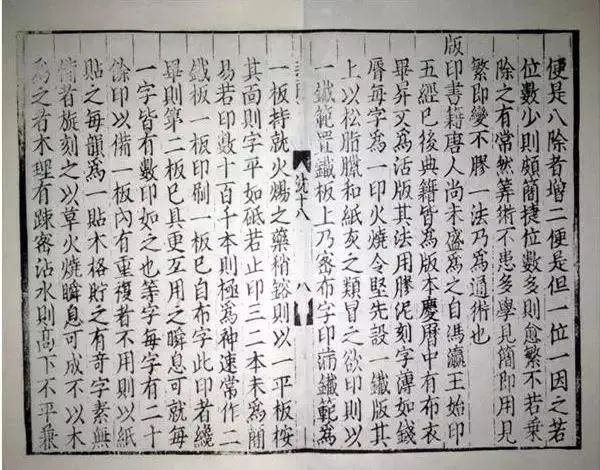 便是八除者增二便是但一位一因之若
位數少則頗簡捷位數多則愈繁不若乗
除之有常然筭術不患多學見簡即用見
繁即變不膠一法乃爲通術也
版印書籍唐人尚未盛爲之自馮瀛王始印
五經已後典籍皆爲版本慶曆中有布衣
畢昇又爲活版其法用膠泥刻字薄如錢
脣每字爲一印火燒令堅先設一鐵版其
上以松脂臘和紙灰之類冒之欲印則以
一鐵範置鐵板上乃密布字印滿鐵範爲
沈十八
八
一板持就火煬之藥稍鎔則以一平板按
其面則字平如砥若止印三二本未爲簡
易若印數十百千本則極爲神速常作二
鐵板一板印刷一板已自布字此印者纔
畢則第二板已具更互用之瞬息可就每
一字皆有數印如之也等字每字有二十
餘印以備一板內有重複者不用則以紙
貼之每韻爲一貼木格貯之有竒字素無
備者旋刻之以草火燒瞬息可成不以木
爲之者木理有踈密沾水則高下不平兼